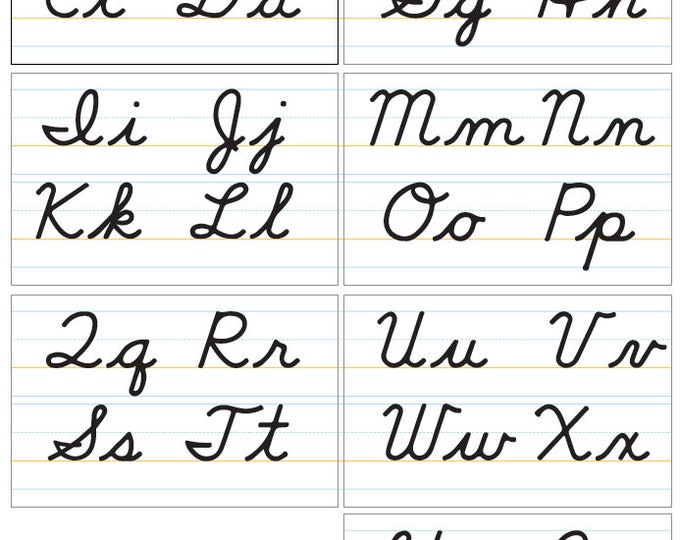 Ii Jj
Kk Ll
Mm Nn
Oo Pp
Qq Rr
Ss Tt
Uu Vv
Ww Xx